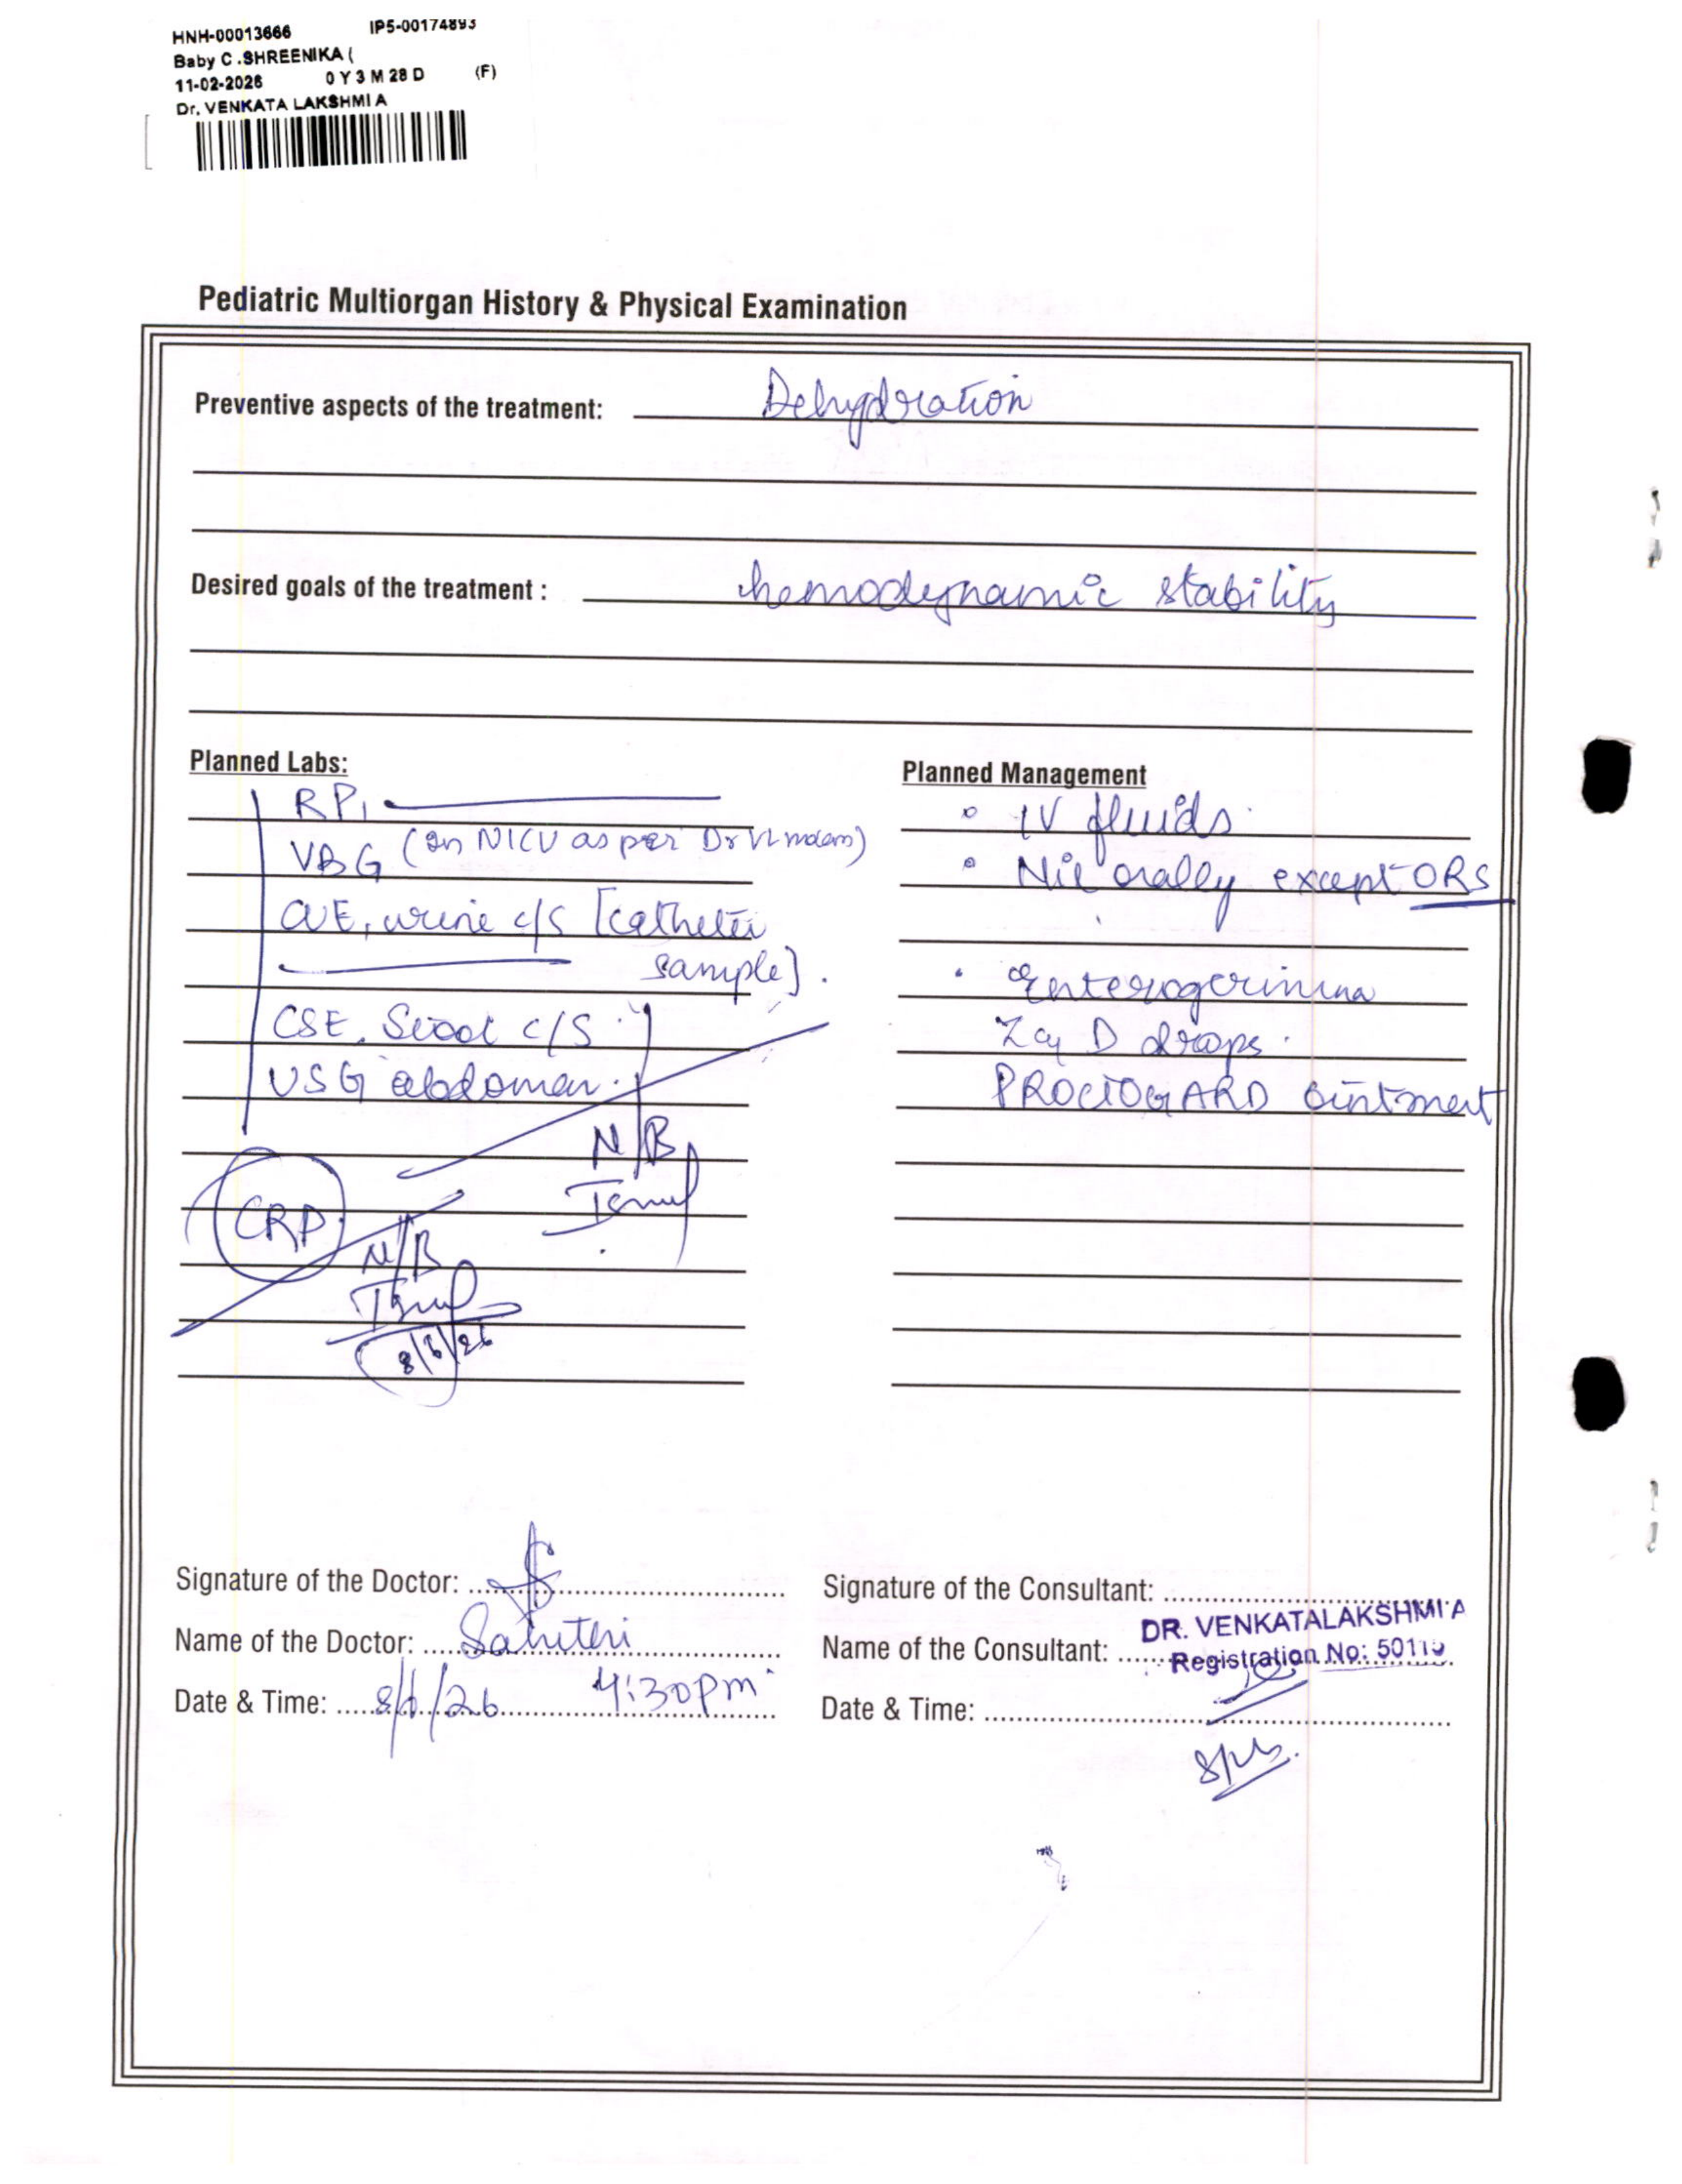 HNH-00013666 IP5-00174893
Baby C .SHREENIKA (
11-02-2026 0 Y 3 M 28 D (F)
Dr. VENKATA LAKSHMI A
Pediatric Multiorgan History & Physical Examination
Preventive aspects of the treatment: Dehydration
Desired goals of the treatment : hemodynamic stability
Planned Labs:
RP1
VBG (in NICU as per Dr VL madam)
CUE, urine c/s [catheter
sample].
CSE. Stool c/s
USG abdomen.
N/B
CRP
N/B
8/6/26
Planned Management
IV fluids.
Nil orally except ORS
Enterogermina
D drops.
PROCTOGARD ointment
Signature of the Doctor:
Name of the Doctor: Sahiteri
Date & Time: 8/6/26 4:30pm
Signature of the Consultant:
Name of the Consultant: DR. VENKATALAKSHMI A
Registration No: 50115
Date & Time: